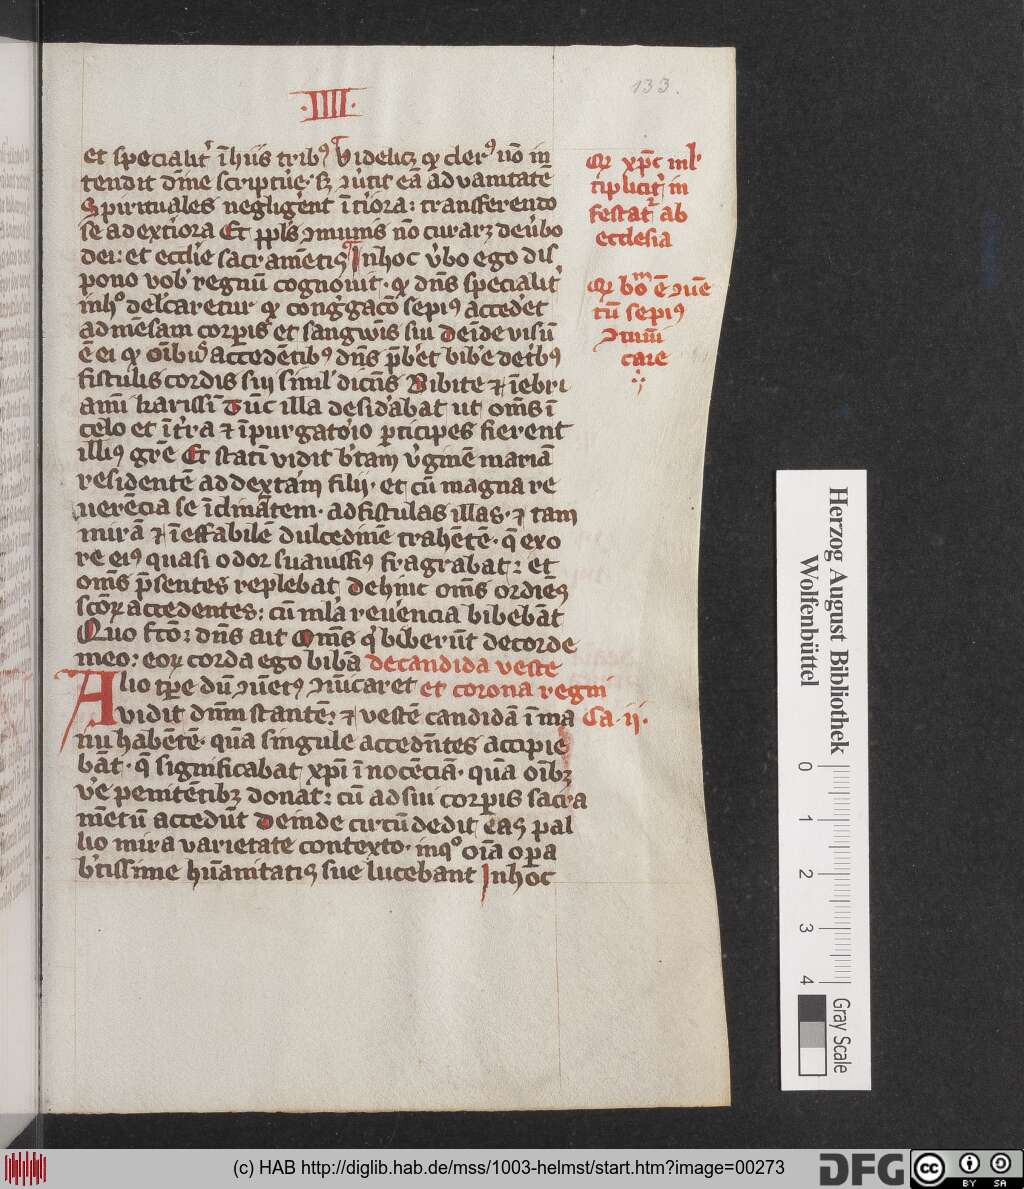 ·IIII·
133.
et specialit̉ ī hiis trib⁹ Videlicꝫ ꝙ cler⁹ nō in
tendit dīne sc͛pture · sꝫ ↄ̉utit eā ad vanitatē
Spirituales negligēnt īt̉iora : transferendo
se ad ext̉iora Et ꝓpl̄s ↄmunis nō curarꝫ de v̉bo
dei : et eccl̄ie sacramētis Inhoc v̉bo ego dis
pono vob̉ regnū cognouit · ꝙ dn̄s specialit̉
in h̉ delc̄aretur ꝙ con̄g̉gacō sepi⁹ accedet
ad mēsam corꝑis et sangwīs sui deīde visū
ē ei ꝙ oībꝰ accedētib⁹ dn̄s p̄bet bibe de t̉b⁹
fistulis cordis sui simil̉ dicēs Bibite ⁊ īebri
amī karissī Tūc illa desid̉abat ut om̄s ī
celo et īt̉ra ⁊ ī purgato͛io ꝑticipes fierent
illi⁹ gr̄e Et statī vidit b̄tam v̉ginē mariā
residentē ad dextam filii · et cū magna re
uerēcia se īclinātem · ad fistulas illas · ⁊ tam
mirā ⁊ īeffabilē dulcedinē trahētē · q̄ exo
re ei⁹ quasi odor suauissi⁹ fragrabat : et
om̄s p̄sentes replebat dehinc om̄s ordiēs
sc̄oꝝ accedentes : cū ml̄a reuēncia bibebāt
Quo fc̄o : dn̄s ait Om̄s q̉ biberūt de corde
meo : eoꝝ corda ego bibā de candida veste
Alio tꝑe dū ↄuēt⁹ ↄmūicaret et corona regni
vidit dn̄m stantē : ⁊ vestē candidā ī ma Ca · ii ·
nu habētē · quā singule accedn̄tes accipie
bāt · q̄ significabat xp̄i ī nocēciā · quā oībꝫ
v̉e penitētibꝫ donat : cū ad sui corꝑis sacra
mētū accedūt Deinde circūdedit eas pal
lio mira varietate contexto · inq° oīa oꝑa
b̄tissime hūanitatis sue lucebant Inhoc
ꝙ xp̄c ml̉
tiplicit̉ in
festat̉ ab
ecclesia
ꝙ bo͞m ē ↄuē
tū sepi⁹
ↄmūi
care
Herzog August Bibliothek
Wolfenbüttel
0 1 2 3 4
Gray Scale
(c) HAB http://diglib.hab.de/mss/1003-helmst/start.htm?image=00273
DFG
cc BY SA